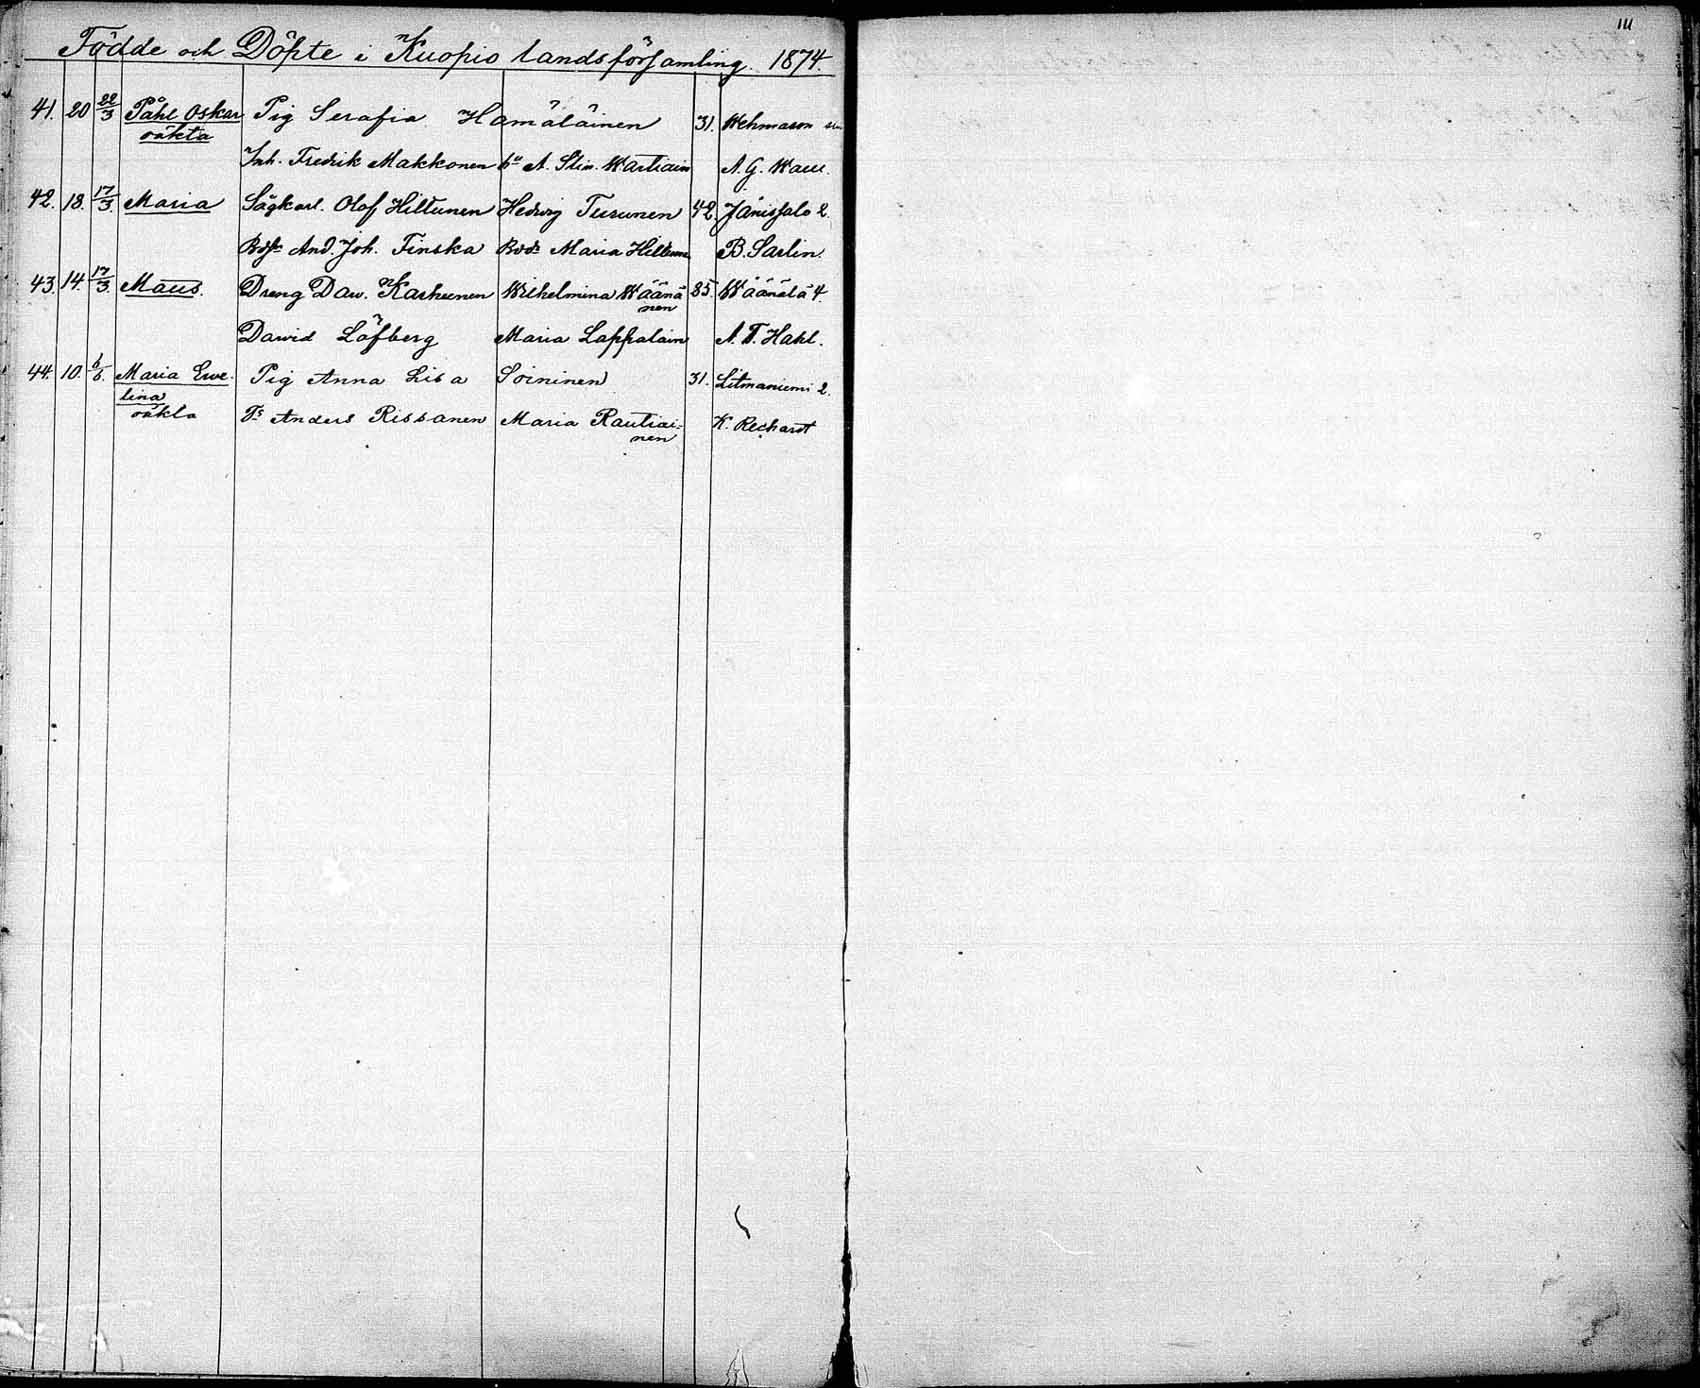 Födde och Döpte i Kuopio landsförsamling. 1874.
III
41. 20 22/3 Påhl Oskar Pig Serafia Hämäläinen 31. Wehmason
oäkta
Inh. Fredrik Makkonen A. Stin. Wartiain A. G. Waeu.
42. 18. 17/3. Maria Sågkarl. Olof Hiltunen Hedvig Turunen 42. Jänissalo 2.
And. Joh. Finska Maria Hiltunen B. Sarlin.
43. 14. 17/3. Maus. Dreng Daw. Karhunen Wilhelmina Wäänä 35. Wäänälä 4.
nen
Dawid Löfberg Maria Lappalain A. T. Hahl.
44. 10. 6/5. Maria Ewe- Pig Anna Lisa Soininen 31. Litmaniemi 2.
lina
oäkta Ts Anders Rissanen Maria Rautiai- K. Rechardt
nen